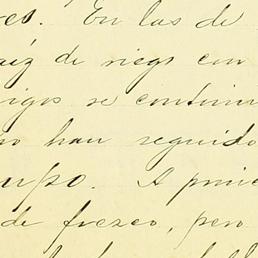 es. En las de
aiz de riego con
igos se continu
o han seguido
upo. A princ
de fresco, pero